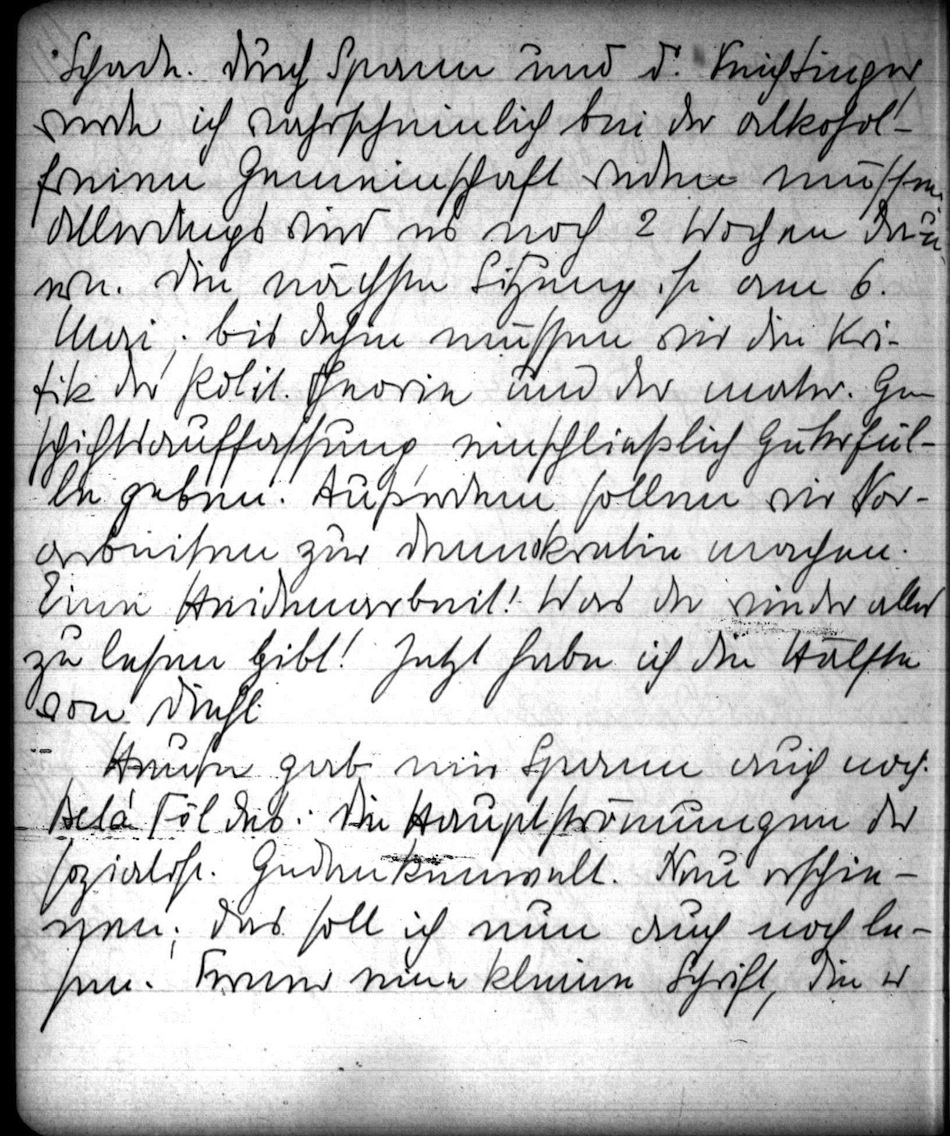 Schade. Durch Spann und D.
werde ich wahrscheinlich bei der alkohol-
freien Gemeinschaft reden müssen.
Allerdings sind es noch 2 Wochen
Die nächste Sitzung ist am 6.
Mai; bis dahin müssen wir die Kri-
tik der polit. Theorie und der mater. Ge-
schichtsauffassung einschließlich
geben. Außerdem sollen wir Vor-
arbeiten zur Demokratie machen.
Eine Heidenarbeit! Was da wieder alles
zu lesen gibt! Jetzt habe ich die Hälfte
von Diehl.
Heute gab mir Spann auch noch
Bela Földes: Die Hauptströmungen der
sozialist. Gedankenwelt. Neu erschie-
nen; das soll ich nun auch noch le-
sen. Ferner eine kleine Schrift, die er